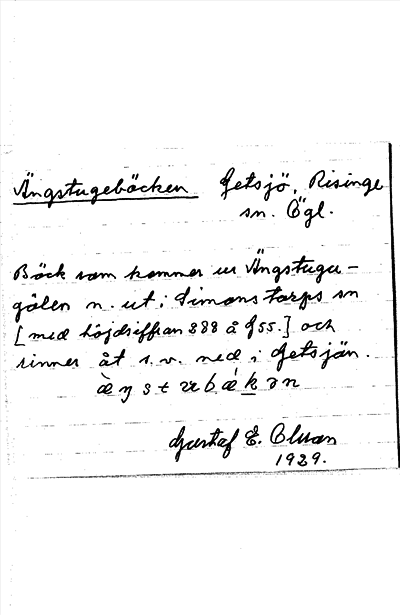 Ängstugebäcken Getsjö, Risinge
sn. Ögl.
Bäck som kommer ur Ängstuge-
gölen n. ut i Simonstorps sn
[med höjdsiffran 888 å G55.] och
rinner åt s.v. ned i Getsjön.
Gustaf E. Olsson
1929.